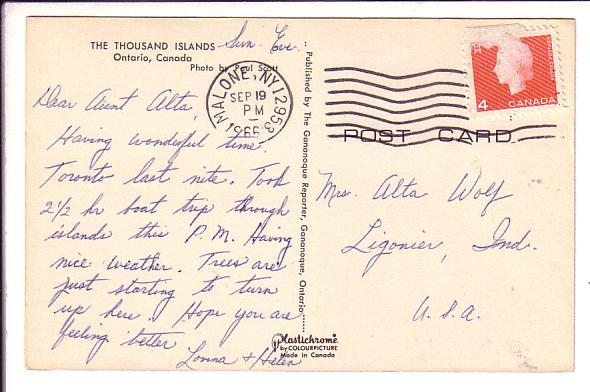 THE THOUSAND ISLANDS
Ontario, Canada
Photo by Paul Scott
Sun. Eve.
Dear Aunt Alta,
Having wonderful time.
Toronto last nite. Took
2½ hr boat trip through
islands this P.M. Having
nice weather. Trees are
just starting to turn
up here. Hope you are
feeling better
Lorina + Helen
MALONE, NY 12953
SEP 19
PM
1966
Published by The Gananoque Reporter, Gananoque, Ontario
Plastichrome
by COLOURPICTURE
Made in Canada
4 CANADA
POST CARD
Mrs. Alta Wolf
Ligonier, Ind.
U.S.A.